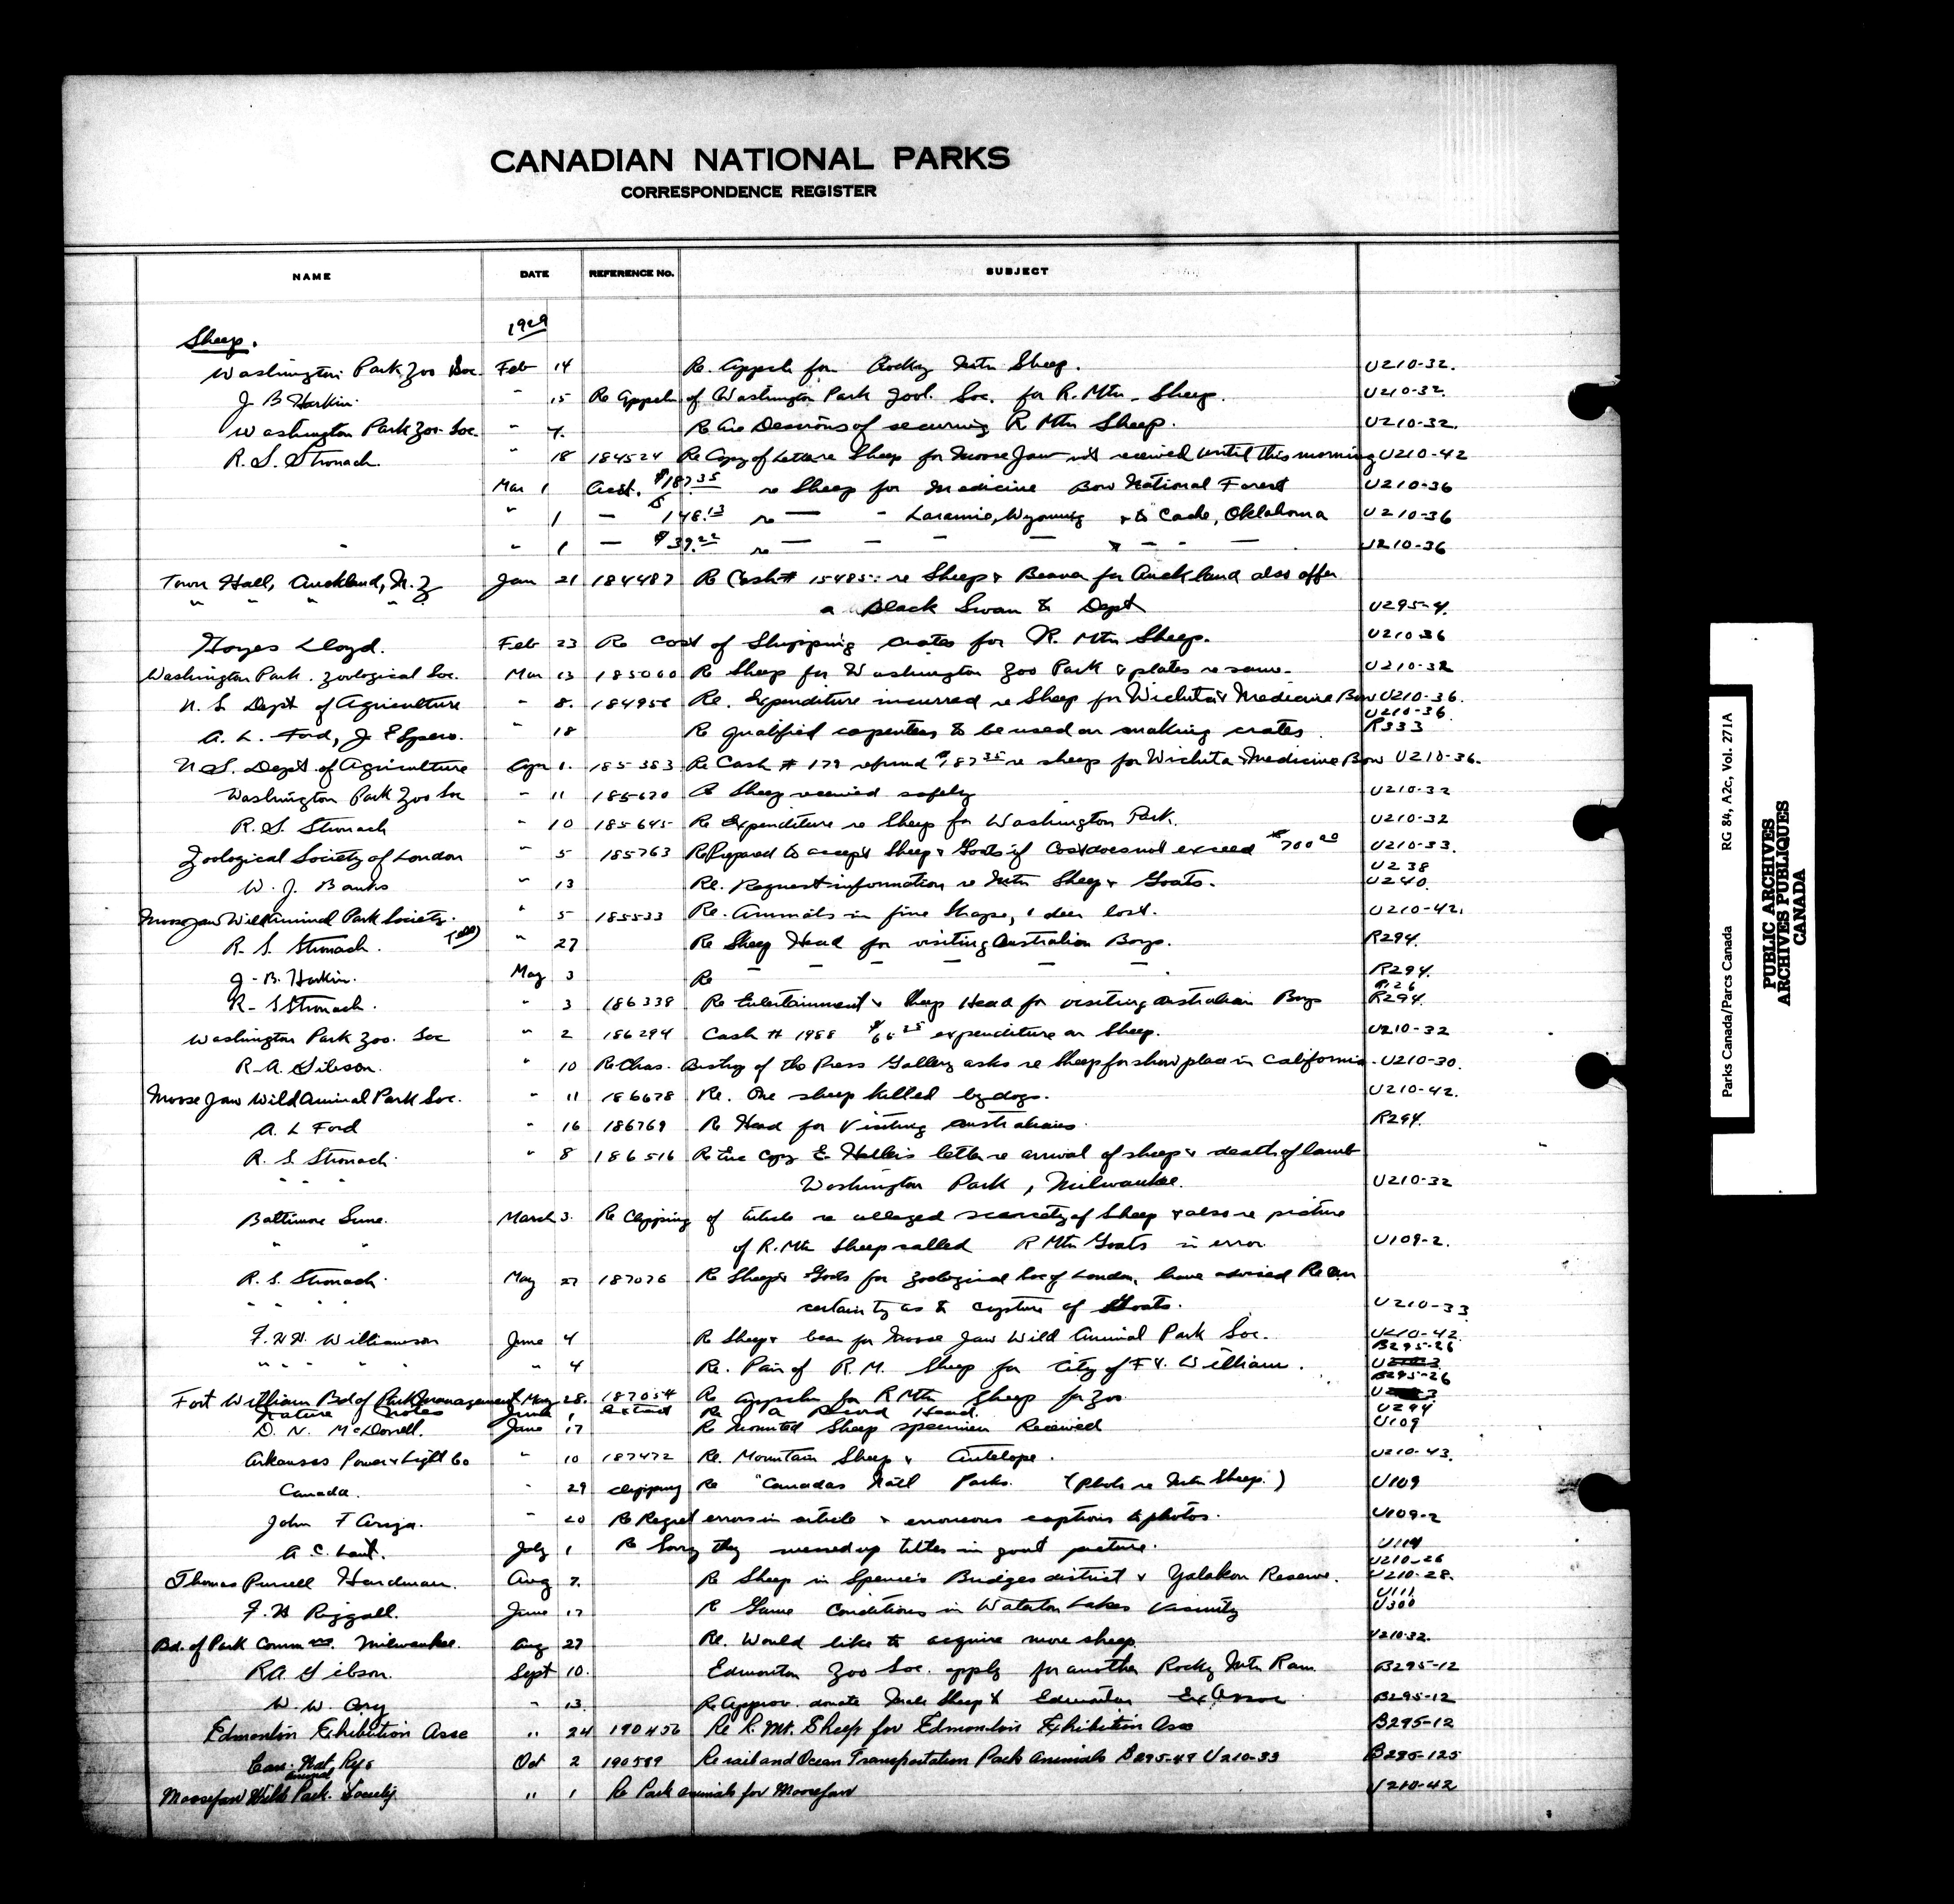 CANADIAN NATIONAL PARKS
CORRESPONDENCE REGISTER
NAME DATE REFERENCE No. SUBJECT
1929
Sheep.
Washington Park Zoo Soc. Feb 14 Re. Appln for Rocky Mtn Sheep. U210-32.
J. B Harkin. " 15 Re Appln of Washington Park Zool. Soc. for R. Mtn. Sheep. U210-32.
Washington Park Zoo. Soc. " 7. Re Are Desirous of securing R Mtn Sheep. U210-32.
R. S. Stronach. " 18 184524 Re Copy of Letter re Sheep for Moose Jaw not received until this morning U210-42
Mar 1 Acct. $187.35 re Sheep for Medicine Bow National Forest U210-36
" 1 — $148.13 re — - Laramie, Wyoming & to Cache, Oklahoma U210-36
" " 1 — $39.22 re — — — — " - - — U210-36
Town Hall, Auckland, N. Z Jan 21 184487 Re Cash # 15485: re Sheep & Beaver for Auckland also offer
" " " " a Black Swan to Dept U295-4.
Hoyes Lloyd. Feb 23 Re Cost of Shipping crates for R. Mtn Sheep. U210-36
Washington Park. Zoological Soc. Mar 13 185060 Re Sheep for Washington Zoo Park & plates re same. U210-32
U. S. Dept of Agriculture " 8. 184956 Re. Expenditure incurred re Sheep for Wichita & Medicine Bow U210-36.
U210-36.
A. L. Ford, J. E Spero. " 18 Re qualified carpenters to be used on making crates. R333
U. S. Dept of Agriculture Apr 1. 185383 Re Cash # 179 refund $187.35 re sheep for Wichita & Medicine Bow U210-36.
Washington Park Zoo Soc " 11 185670 Re Sheep received safely U210-32
R. S. Stronach " 10 185645 Re Expenditure re Sheep for Washington Park. U210-32
Zoological Society of London " 5 185763 Re Prepared to accept Sheep & Goats if Cost does not exceed $700.00 U210-33.
U238
W. J. Banks " 13 Re. Request information re Mtn Sheep & Goats. U240.
Moose Jaw Wild Animal Park Society. " 5 185533 Re. Animals in fine Shape, 1 deer lost. U210-42.
R. S. Stronach. " 27 Re Sheep Head for visiting Australian Boys. R294.
J. B. Harkin. May 3 Re — — — — — R294.
R126
R. S Stronach. " 3 186338 Re Entertainment & Sheep Head for visiting Australian Boys R294.
Washington Park Zoo. Soc " 2 186294 Cash # 1988 expenditure on Sheep. U210-32
R. A. Gibson. " 10 Re Chas. Bishop of the Press Gallery asks re Sheep for show place in California. U210-30.
Moose Jaw Wild Animal Park Soc. " 11 186678 Re. One sheep killed by dogs. U210-42.
A. L Ford " 16 186769 Re Head for Visiting Australians. R294.
R. S. Stronach. " 8 186516 Re Enc Copy E. Heller's letter re arrival of sheep & death of lamb
" " " Washington Park, Milwaukee. U210-32
Baltimore Sun. March 3. Re Clipping of Article re alleged scarcity of Sheep & also re picture
" " of R. Mtn Sheep called R Mtn Goats in error U109-2.
R. S. Stronach. May 27 187076 Re Sheep & Goats for Zoological Soc of London, have advised Re un
" " " " certainty as to capture of Goats. U210-33
F. H. H. Williamson June 4 Re Sheep & bear for Moose Jaw Wild Animal Park Soc. U210-42.
B295-26
" " " " " " 4 Re. Pair of R. M. Sheep for City of Ft. William.
B295-26
Fort William Bd of Park Management May 28. 187054 Re Appln for R Mtn Sheep for Zoo
Nature Notes June 1 extract Re a Record Head. U294
D. N. McDonell. June 17 Re Mounted Sheep specimen Received U109
Arkansas Power & Light Co " 10 187472 Re. Mountain Sheep & Antelope. U210-43.
Canada. " 29 clipping Re "Canadas Nat'l Parks. (photo re Mtn Sheep.) U109
John F Ariza. " 20 Re Regret errors in article & erroneous captions to photos. U109-2
A. C. Laut. July 1 Re Sorry they messed up titles in goat picture. U114
U210-26
Thomas Pursell Hardman. Aug 7. Re Sheep in Spence's Bridges district & Yalakon Reserve. U210-28.
U111
F. H Riggall. June 17 Re Game Conditions in Waterton Lakes Vicinity U300
Bd. of Park Commrs. Milwaukee. Aug 27 Re. Would like to acquire more sheep. U210-32.
R A. Gibson. Sept 10. Edmonton Zoo Soc. apply for another Rocky Mtn Ram. B295-12
W. W Cory " 13. Re Approv. donate Male Sheep to Edmonton Ex Assoc B295-12
Edmonton Exhibition Asse " 24 190456 Re R. Mt. Sheep for Edmonton Exhibition Ass B295-12
Can. Nat. Rys Oct 2 190589 Re rail and Ocean Transportation Park animals B295-49 U210-33 B295-125
Moosejaw Wild animal Park. Society " 1 Re Park animals for Moosejaw U210-42
Parks Canada/Parcs Canada RG 84, A2c, Vol. 271A
PUBLIC ARCHIVES
ARCHIVES PUBLIQUES
CANADA